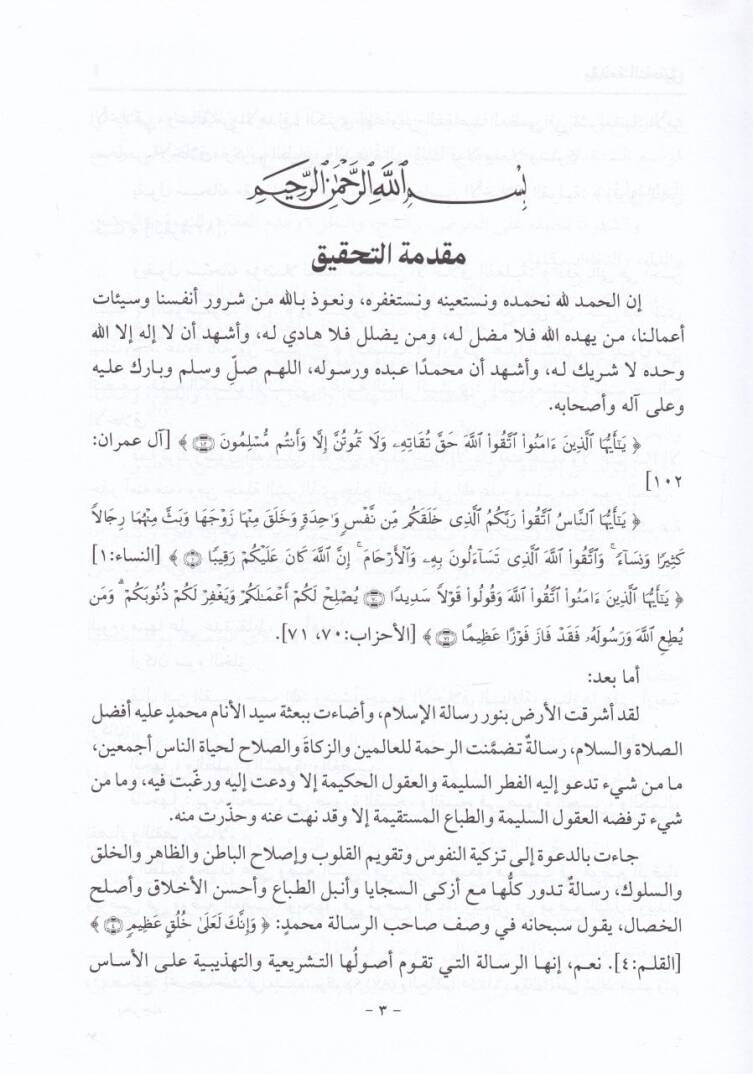 بسم الله الرحمن الرحيم
مقدمة التحقيق
إن الحمد لله نحمده ونستعينه ونستغفره، ونعوذ بالله من شرور أنفسنا وسيئات
أعمالنا، من يهده الله فلا مضل له، ومن يضلل فلا هادي له، وأشهد أن لا إله إلا الله
وحده لا شريك له، وأشهد أن محمدًا عبده ورسوله، اللهم صلِّ وسلم وبارك عليه
وعلى آله وأصحابه.
﴿ يَٰٓأَيُّهَا ٱلَّذِينَ ءَامَنُوا۟ ٱتَّقُوا۟ ٱللَّهَ حَقَّ تُقَاتِهِۦ وَلَا تَمُوتُنَّ إِلَّا وَأَنتُم مُّسْلِمُونَ ١٠٢ ﴾ [آل عمران:
١٠٢]
﴿ يَٰٓأَيُّهَا ٱلنَّاسُ ٱتَّقُوا۟ رَبَّكُمُ ٱلَّذِى خَلَقَكُم مِّن نَّفْسٍ وَٰحِدَةٍ وَخَلَقَ مِنْهَا زَوْجَهَا وَبَثَّ مِنْهُمَا رِجَالًا
كَثِيرًا وَنِسَآءً ۚ وَٱتَّقُوا۟ ٱللَّهَ ٱلَّذِى تَسَآءَلُونَ بِهِۦ وَٱلْأَرْحَامَ ۚ إِنَّ ٱللَّهَ كَانَ عَلَيْكُمْ رَقِيبًا ١ ﴾ [النساء:١]
﴿ يَٰٓأَيُّهَا ٱلَّذِينَ ءَامَنُوا۟ ٱتَّقُوا۟ ٱللَّهَ وَقُولُوا۟ قَوْلًا سَدِيدًا ٧٠ يُصْلِحْ لَكُمْ أَعْمَٰلَكُمْ وَيَغْفِرْ لَكُمْ ذُنُوبَكُمْ ۗ وَمَن
يُطِعِ ٱللَّهَ وَرَسُولَهُۥ فَقَدْ فَازَ فَوْزًا عَظِيمًا ٧١ ﴾ [الأحزاب:٧٠، ٧١].
أما بعد:
لقد أشرقت الأرض بنور رسالة الإسلام، وأضاءت ببعثة سيد الأنام محمدٍ عليه أفضل
الصلاة والسلام، رسالةٌ تضمَّنت الرحمة للعالمين والزكاةَ والصلاح لحياة الناس أجمعين،
ما من شيء تدعو إليه الفطر السليمة والعقول الحكيمة إلا ودعت إليه ورغّبت فيه، وما من
شيء ترفضه العقول السليمة والطباع المستقيمة إلا وقد نهت عنه وحذّرت منه.
جاءت بالدعوة إلى تزكية النفوس وتقويم القلوب وإصلاح الباطن والظاهر والخلق
والسلوك، رسالةٌ تدور كلُّها مع أزكى السجايا وأنبل الطباع وأحسن الأخلاق وأصلح
الخصال، يقول سبحانه في وصف صاحب الرسالة محمدٍ: ﴿ وَإِنَّكَ لَعَلَىٰ خُلُقٍ عَظِيمٍ ٤ ﴾
[القلم:٤]. نعم، إنها الرسالة التي تقوم أصولُها التشريعية والتهذيبية على الأساس
- ٣ -